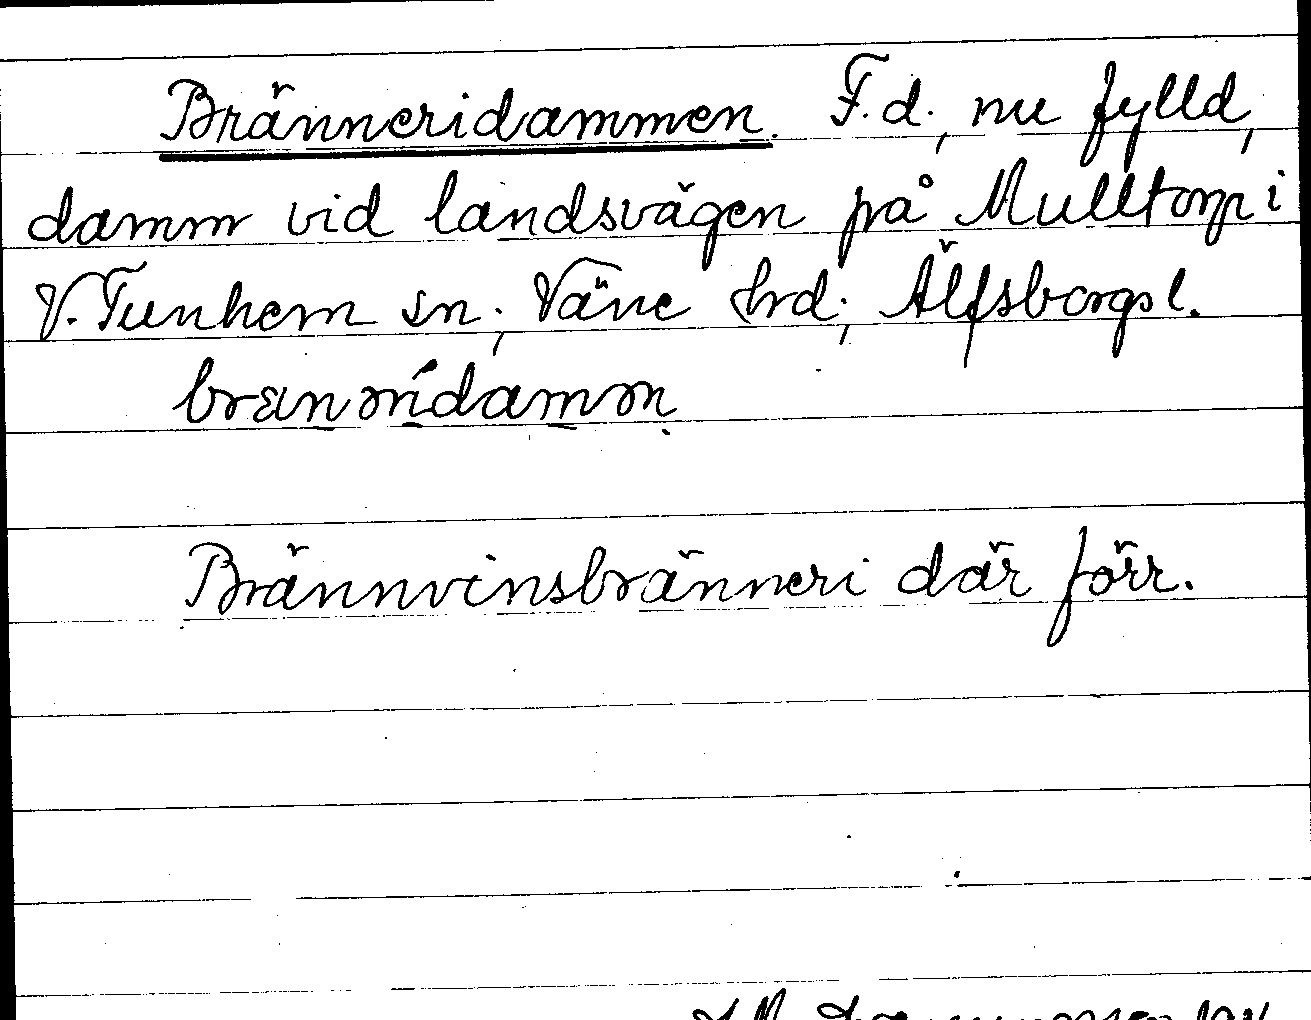 Bränneridammen. F.d., nu fylld,
damm vid landsvägen på Mulltorp i
V. Tunhem sn., Väne hrd., Älfsborgs l.
Brännvinsbränneri där förr.